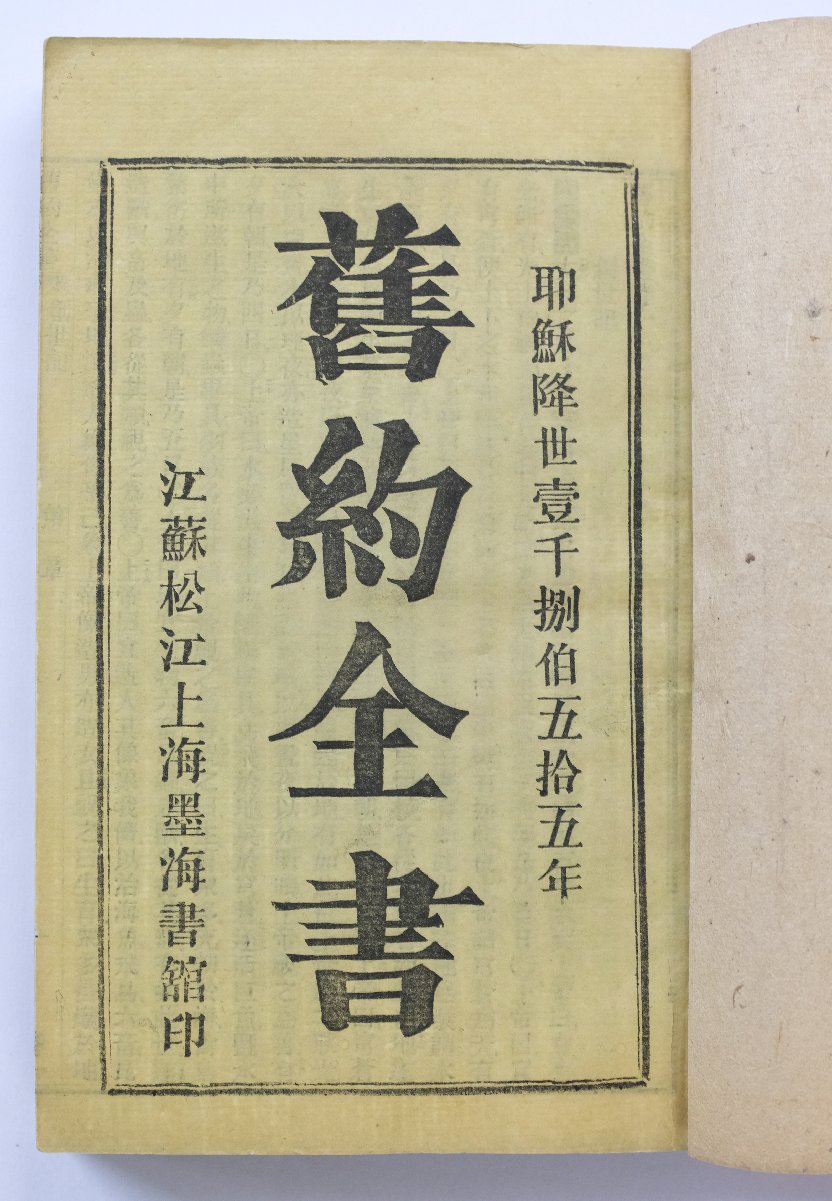 耶穌降世壹千捌伯五拾五年
舊約全書
江蘇松江上海墨海書舘印